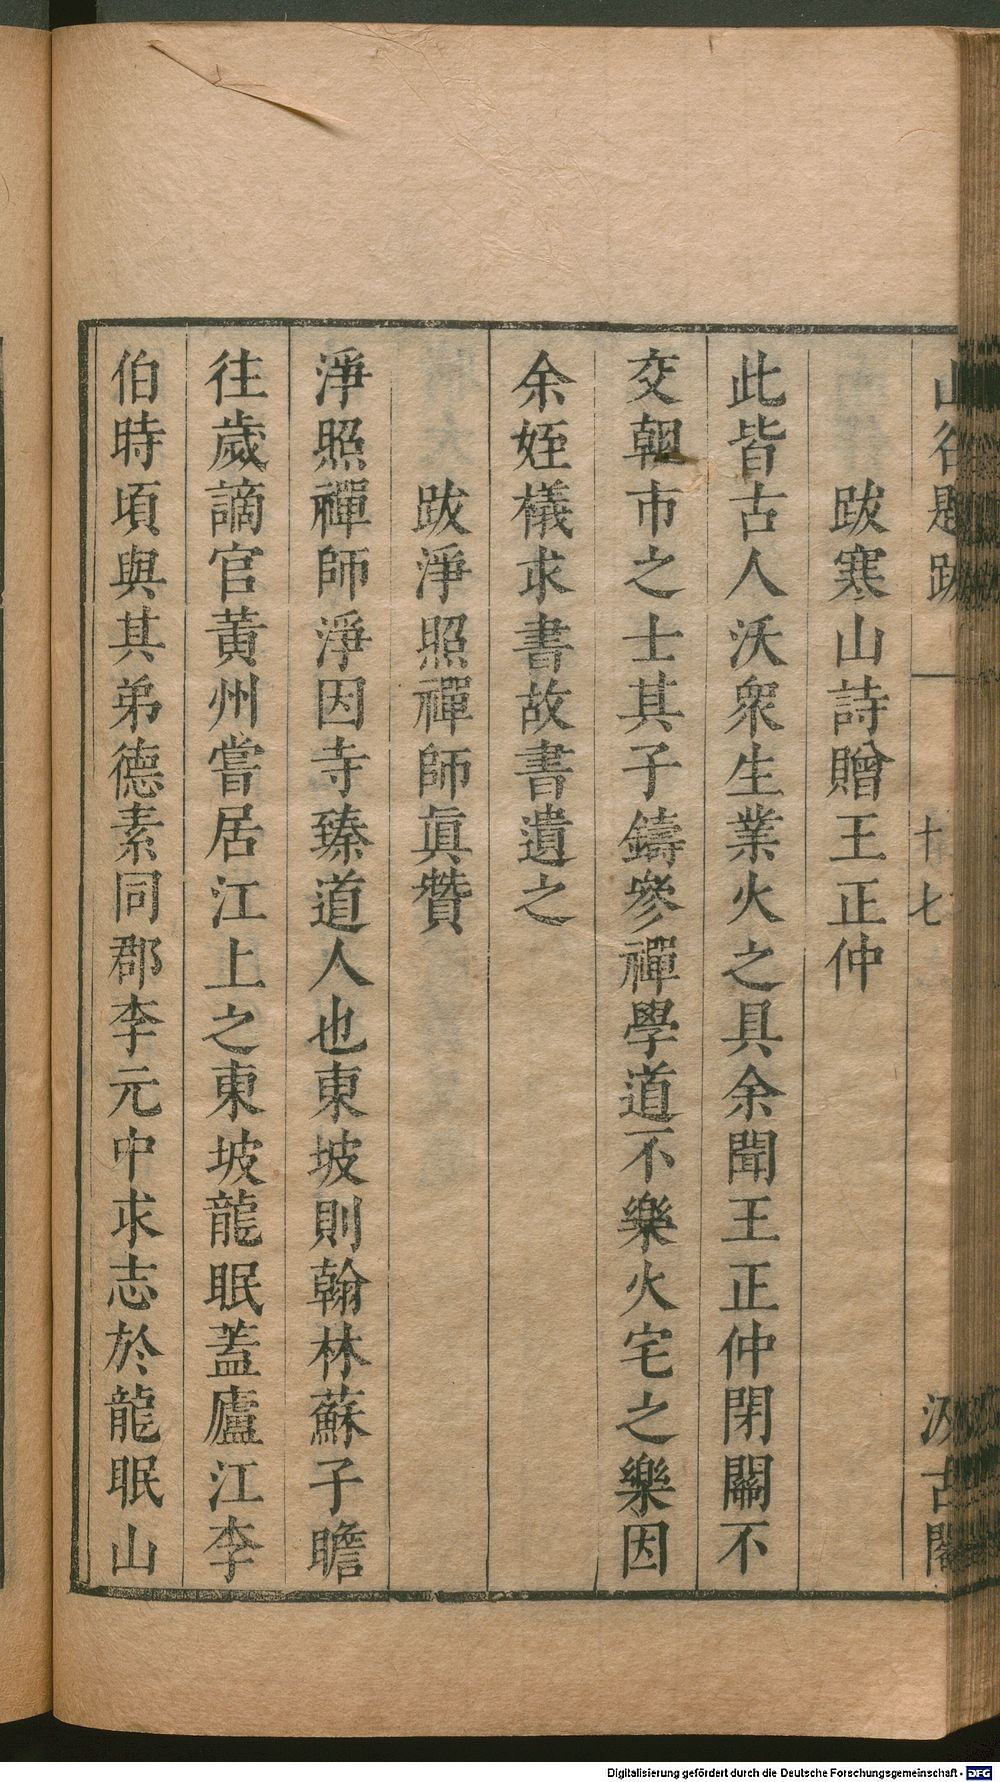 山谷題跋 一 十七 汲古閣
跋寒山詩贈王正仲
此皆古人沃衆生業火之具余聞王正仲閉關不
交朝市之士其子鑄參禪學道不樂火宅之樂因
余姪㰕求書故書遺之
跋淨照禪師眞贊
淨照禪師淨因寺臻道人也東坡則翰林蘇子瞻
往歲謫官黃州嘗居江上之東坡龍眠蓋廬江李
伯時頃與其弟德素同郡李元中求志於龍眠山
Digitalisierung gefördert durch die Deutsche Forschungsgemeinschaft - DFG